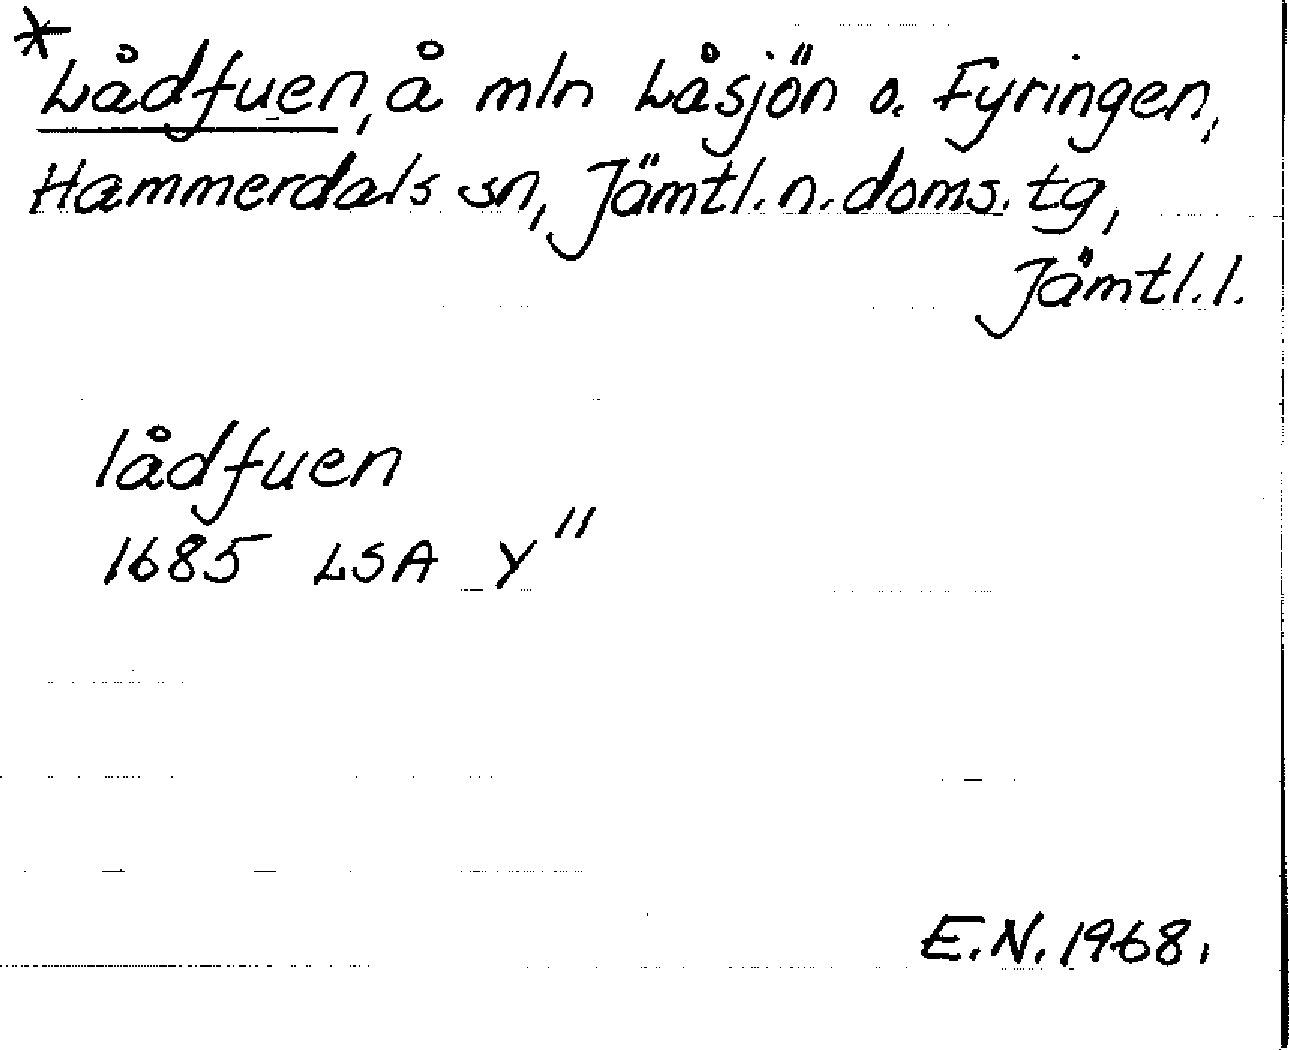 *Lådfuen, å mln Låsjön o. Fyringen,
Hammerdals sn, Jämtl. n. doms. tg,
Jämtl. l.
lådfuen
1685 LSA Y"
E.N. 1968.